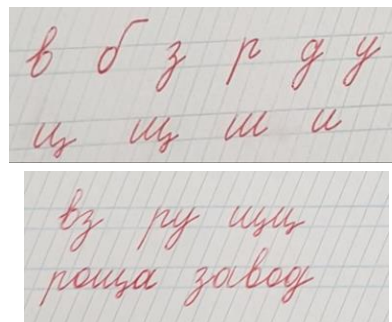 в б з р д у
ц щ ш и
вз ру щц
роща завод